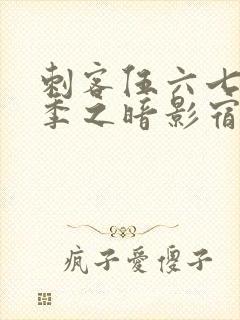 刺客伍六七
季之暗影宿
疯子爱傻子